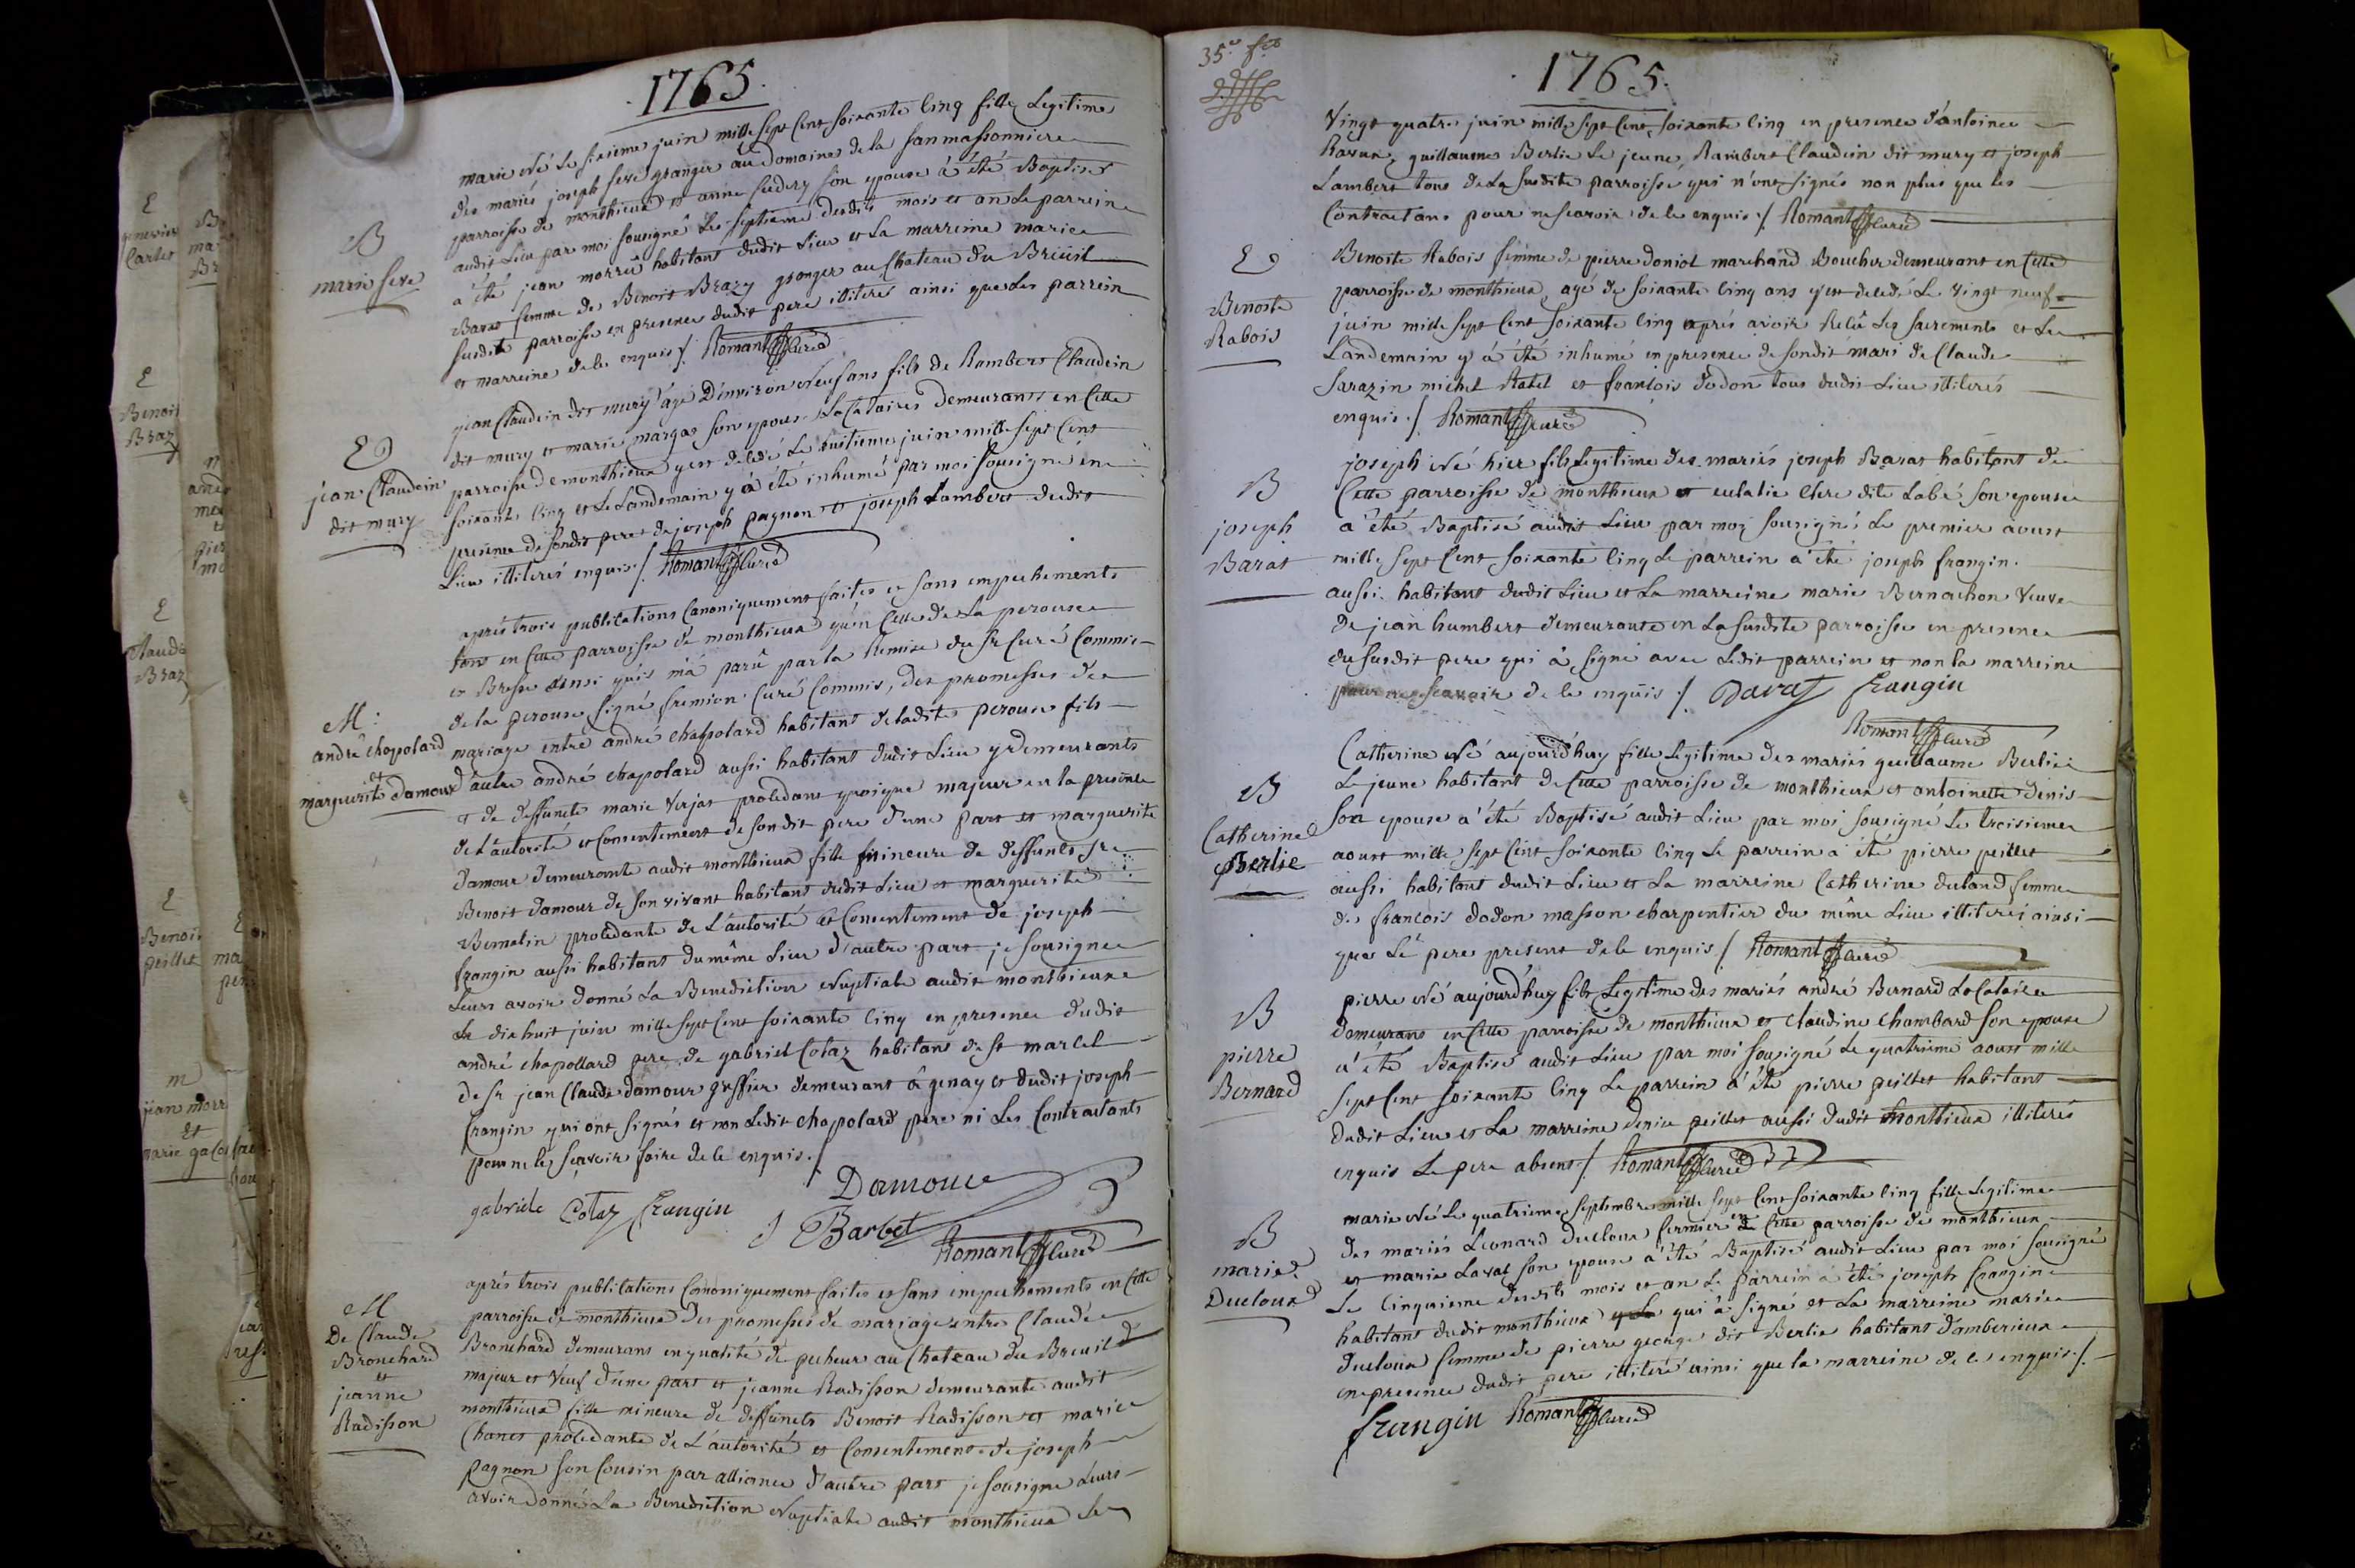 1765.
B
marie seve
marie né le sixieme juin mille sept cent soixante cinq fille legitime
des mariés joseph seve granger au domaine de la san massonniere
parroisse de monthieux et anne sudery son epouse à été Baptisé
audit lieu par moi sousigné le septieme desdits mois et an le parrein
a été jean morrel habitant dudit lieu et la marreine marie
Barat femme de Benoit Brazy granger au chateau du Breüil
susdite parroisse en presence dudit pere illiteré ainsi que les parrein
et marreine de le enquis ./. Romant curé
E
jean Claudein
dit mury
jean Claudein dit mury agé D'environ neuf ans fils de Rambert Claudein
dit mury et marie margas son epouse Locataires demeurants en cette
parroisse de monthieux y est décédé le huitieme juin mille sept cent
soixante cinq et le Landemain y à été inhumé par moi sousigné en
presence de sondit pere de joseph pagnon et joseph Lambert dudit
Lieu illiterés enquis ./. Romant curé
M :
andré chapolard
et
marguerite damour
aprés trois publications canoniquement faites et sans empechements
tant en cette parroisse de monthieux qu'en celle de la perouse
en Bresse ainsi qu'il m'à parû par la Remise du Sr curé commis
de la perouse signé fremion curé commis, des promesses de
mariage entre andré chappolard habitant de ladite perouse fils
d'autre andré chapolard aussi habitant dudit lieu y demeurants
et de deffuncte marie Verjat procedant quoique majeur en la presence
de L'autorité et consentement de sondit pere d'une part et marguerite
damour demeurante audit monthieux fille mineure de deffuncts Sr
Benoit damour de son vivant habitant dudit lieu et marguerite
Bernalin procedante de L'autorité et consentement de joseph
frangin aussi habitant du même lieu d'autre part je sousigné
leurs avoir donné la Benediction nuptiale audit monthieux
le dix huit juin mille sept cent soixante cinq en presence dudit
andré chapollard pere, de gabriel Cotaz habitant de St marcel
de Sr jean Claude damour greffier demeurant à genay et dudit joseph
frangin qui ont signés et non ledit chapolard pere ni les contractants
pour ne le sçavoir faire de le enquis ./.
gabriele Cotaz frangin Damour
J Barbet
Romant curé
M
De Claude
Bronchard
et
jeanne
Radisson
aprés trois publications canoniquement faites et sans empechements en cette
parroisse de monthieux des promesses de mariage entre Claude
Bronchard demeurant en qualité de pecheur au chateau du Breuil
majeur et veuf d'une part et jeanne Radisson demeurante audit
monthieux fille mineure de deffuncts Benoit Radisson et marie
Chanet procedante de L'autorité et consentement de joseph
pagnon son cousin par alliance d'autre part je sousigné leurs
avoir donné la Benediction nuptiale audit monthieux le
35e ft
1765.
Vingt quatre juin mille sept cent soixante cinq en presence d'antoine
Ravux, guillaume Berlie le jeune, Rambert Claudein dit mury et joseph
Lambert tous de la susdite parroisse qui n'ont signés non plus que les
contractans pour ne sçavoir de le enquis ./. Romant curé
E
Benoite
Rabois
Benoite Rabois femme de pierre doniol marchand Boucher demeurant en cette
parroisse de monthieux, agé de soixante cinq ans y est decedé le vingt neuf
juin mille sept cent soixante cinq aprés avoir reçû les sacrements et le
Landemain y à été inhumé en presence de sondit mari de Claude
Sarazin michel Ratel et francois dodon tous dudit lieu illiterés
enquis ./. Romant curé
B
joseph
Barat
joseph né hier fils legitime des mariés joseph Barat habitant de
cette parroisse de monthieux et eulalie clere dite Labé son epouse
à été Baptisé audit lieu par moi sousigné le premier aoust
mille sept cent soixante cinq le parrein a été joseph frangin
aussi habitant dudit lieu et la marreine marie Bernachon veuve
de jean humbert demeurante en la susdite parroisse en presence
du susdit pere qui à signé avec ledit parrein et non la marreine
pour ne sçavoir de le enquis ./. Barat frangin
Romant curé
B
Catherine
Berlie
Catherine né aujourd'huy fille legitime des mariés guillaume Berlie
le jeune habitant de cette parroisse de monthieux et antoinette denis
son epouse a été Baptisé audit lieu par moi sousigné le troisieme
aoust mille sept cent soixante cinq le parrein a été pierre peillet
aussi habitant dudit lieu et la marreine Catherine duland femme
de francois dodon masson charpentier du même lieu illiterés ainsi
que le pere present de le enquis ./. Romant curé
B
pierre
Bernard
pierre né aujourd'huy fils legitime des mariés andré Bernard Locataire
demeurant en cette parroisse de monthieux et claudine chambard son epouse
à été Baptisé audit lieu par moi sousigné le quatrieme aoust mille
sept cent soixante cinq le parrein à été pierre peillet habitant
dudit lieu et la marreine denise peillet aussi dudit monthieux illiterés
enquis le pere absent ./. Romant curé
B
marie
Ducloux
marie né le quatrieme septembre mille sept cent soixante cinq fille legitime
des mariés Leonard ducloux fermier en cette parroisse de monthieux
et marie Laval son epouse à été Baptisé audit lieu par moi sousigné
le cinquieme desdits mois et an le parrein à été joseph frangin
habitant dudit monthieux qui à signé et la marreine marie
ducloux femme de pierre george dit Berlie habitant d'amberieux
en presence dudit pere illiteré ainsi que la marreine de le enquis ./.
frangin Romant curé
E
genevieve
Carlet
E
Benoit
Braz
E
Claude
Braz
E
Benoit
peillet
m
jean morr
et
marie gaco